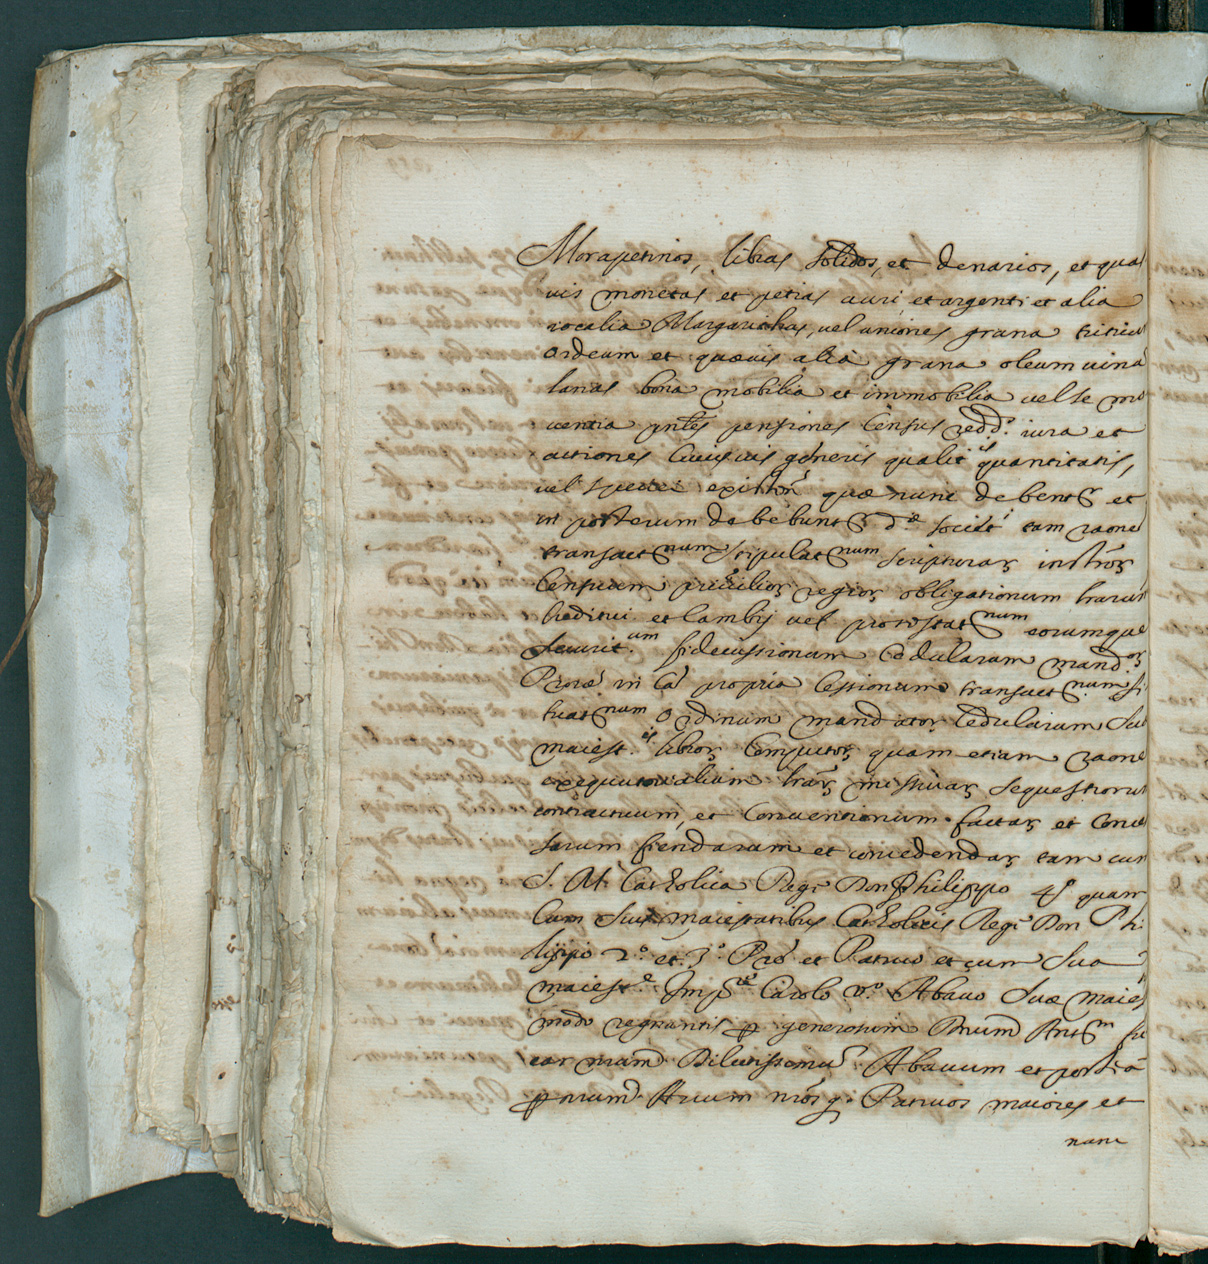 Morapetinos, libras solidos, et denarios, et qua
vis monetas et petias auri, et argenti et alia
iocalia Margaritas, vel uniones grana tritici
ordeum et quævis alia grana oleum vina
lanas bona mobilia et immobilia vel se mo
ventia pntes pensiones census redd.s iura et
actiones cuiusvis generis qualit.is quantitatis,
vel speciei existen quæ nunc debent et
in posterum debebunt d.æ societ.i tam raone
transact num stipulat num scripturar instror
censuum privilior regior obligationum lrarum
creditui et cambij vel protestat num eorumque
securit.um fideiussionum cedularum mand.or
Procæ in Cã propria cessionum transact num si
tuat num ordinum mandator cedularum Suæ
maiest.is libror computor quam etiam raone
exequutorialium lrar missivar sequestrorum
contractuum, et conventionum factar et conces
sarum fiendarum et concedendar tam cum
S. M. Catholica Rege Don Philippo 4.º quam
cum suis maiestatibus Catholicis Regi Don Phi
lippo 2.º et 3.º Pre et Patruo et cum Sua
maiest.e Imp.e Carolo V.º Abavo Suæ maies
modo regnantis p generosum Dnum Ant.m fu
car num Dilectissimum Abavum et
p num Avum nrosq. Patruos maiores et
nunc